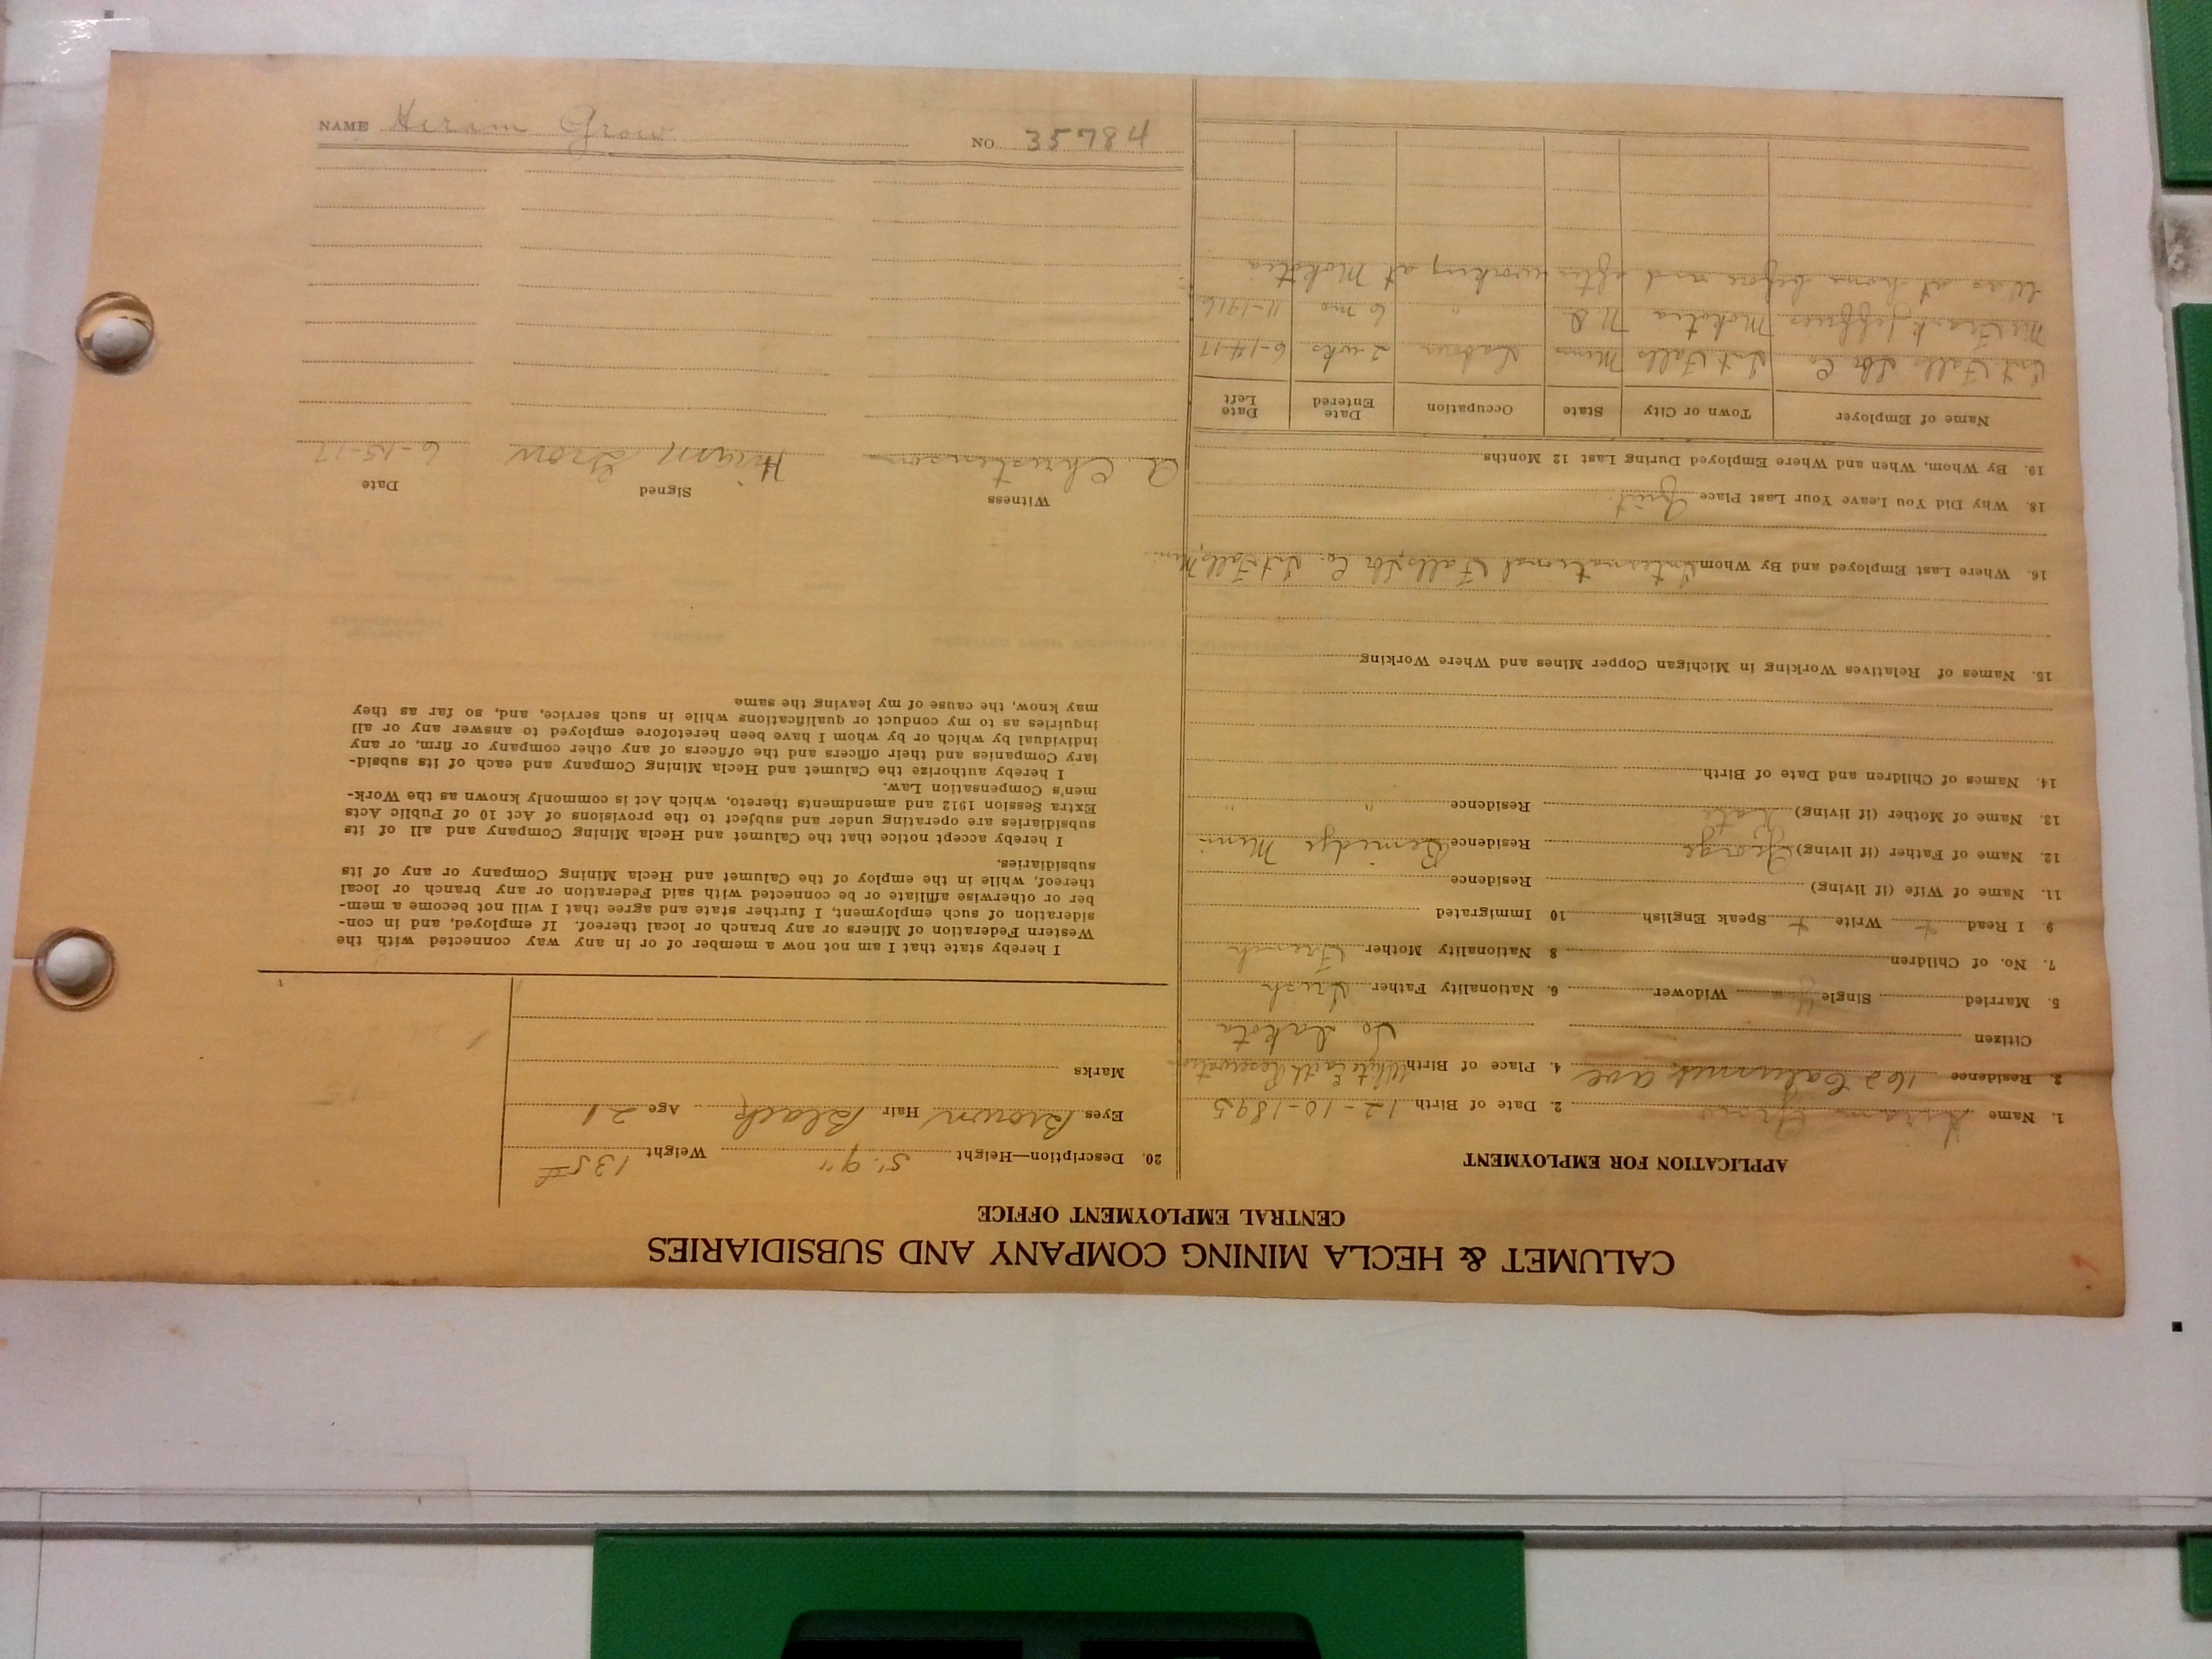 CALUMET & HECLA MINING COMPANY AND SUBSIDIARIES
CENTRAL EMPLOYMENT OFFICE
APPLICATION FOR EMPLOYMENT
1. Name Hiram Grow 2. Date of Birth 12-10-1895
3. Residence 162 Calumet Ave 4. Place of Birth White Earth Reservation
Citizen So Dakota
5. Married Single Widower 6. Nationality Father Irish
7. No. of Children 8 Nationality Mother French
9. I Read + Write + Speak English 10 Immigrated
11. Name of Wife (if living) Residence
12. Name of Father (if living) George Residence Bemidge Minn
13. Name of Mother (if living) Kate Residence " "
14. Names of Children and Date of Birth
15. Names of Relatives Working in Michigan Copper Mines and Where Working
16. Where Last Employed and By Whom International Falls Lbr Co. Int Falls, Minn.
18. Why Did You Leave Your Last Place Quit.
19. By Whom, When and Where Employed During Last 12 Months
Name of Employer Town or City State Occupation Date Entered Date Left
Int Falls Lbr Co Int Falls Minn Laborer 2 wks 6-14-17
Frank Jeffries Mokotia N.D. " 6 mo 11-1916
Was at home before and after working at Mokotia
20. Description—Height 5' 9" Weight 135#
Eyes Brown Hair Black Age 21
Marks
I hereby state that I am not now a member of or in any way connected with the
Western Federation of Miners or any branch or local thereof. If employed, and in con-
sideration of such employment, I further state and agree that I will not become a mem-
ber or otherwise affiliate or be connected with said Federation or any branch or local
thereof, while in the employ of the Calumet and Hecla Mining Company or any of its
subsidiaries.
I hereby accept notice that the Calumet and Hecla Mining Company and all of its
subsidiaries are operating under and subject to the provisions of Act 10 of Public Acts
Extra Session 1912 and amendments thereto, which Act is commonly known as the Work-
men's Compensation Law.
I hereby authorize the Calumet and Hecla Mining Company and each of its subsid-
iary Companies and their officers and the officers of any other company or firm, or any
individual by which or by whom I have been heretofore employed to answer any or all
inquiries as to my conduct or qualifications while in such service, and, so far as they
may know, the cause of my leaving the same
Witness Signed Date
A. Christenson Hiram Grow 6-15-17
NAME Hiram Grow NO. 35784